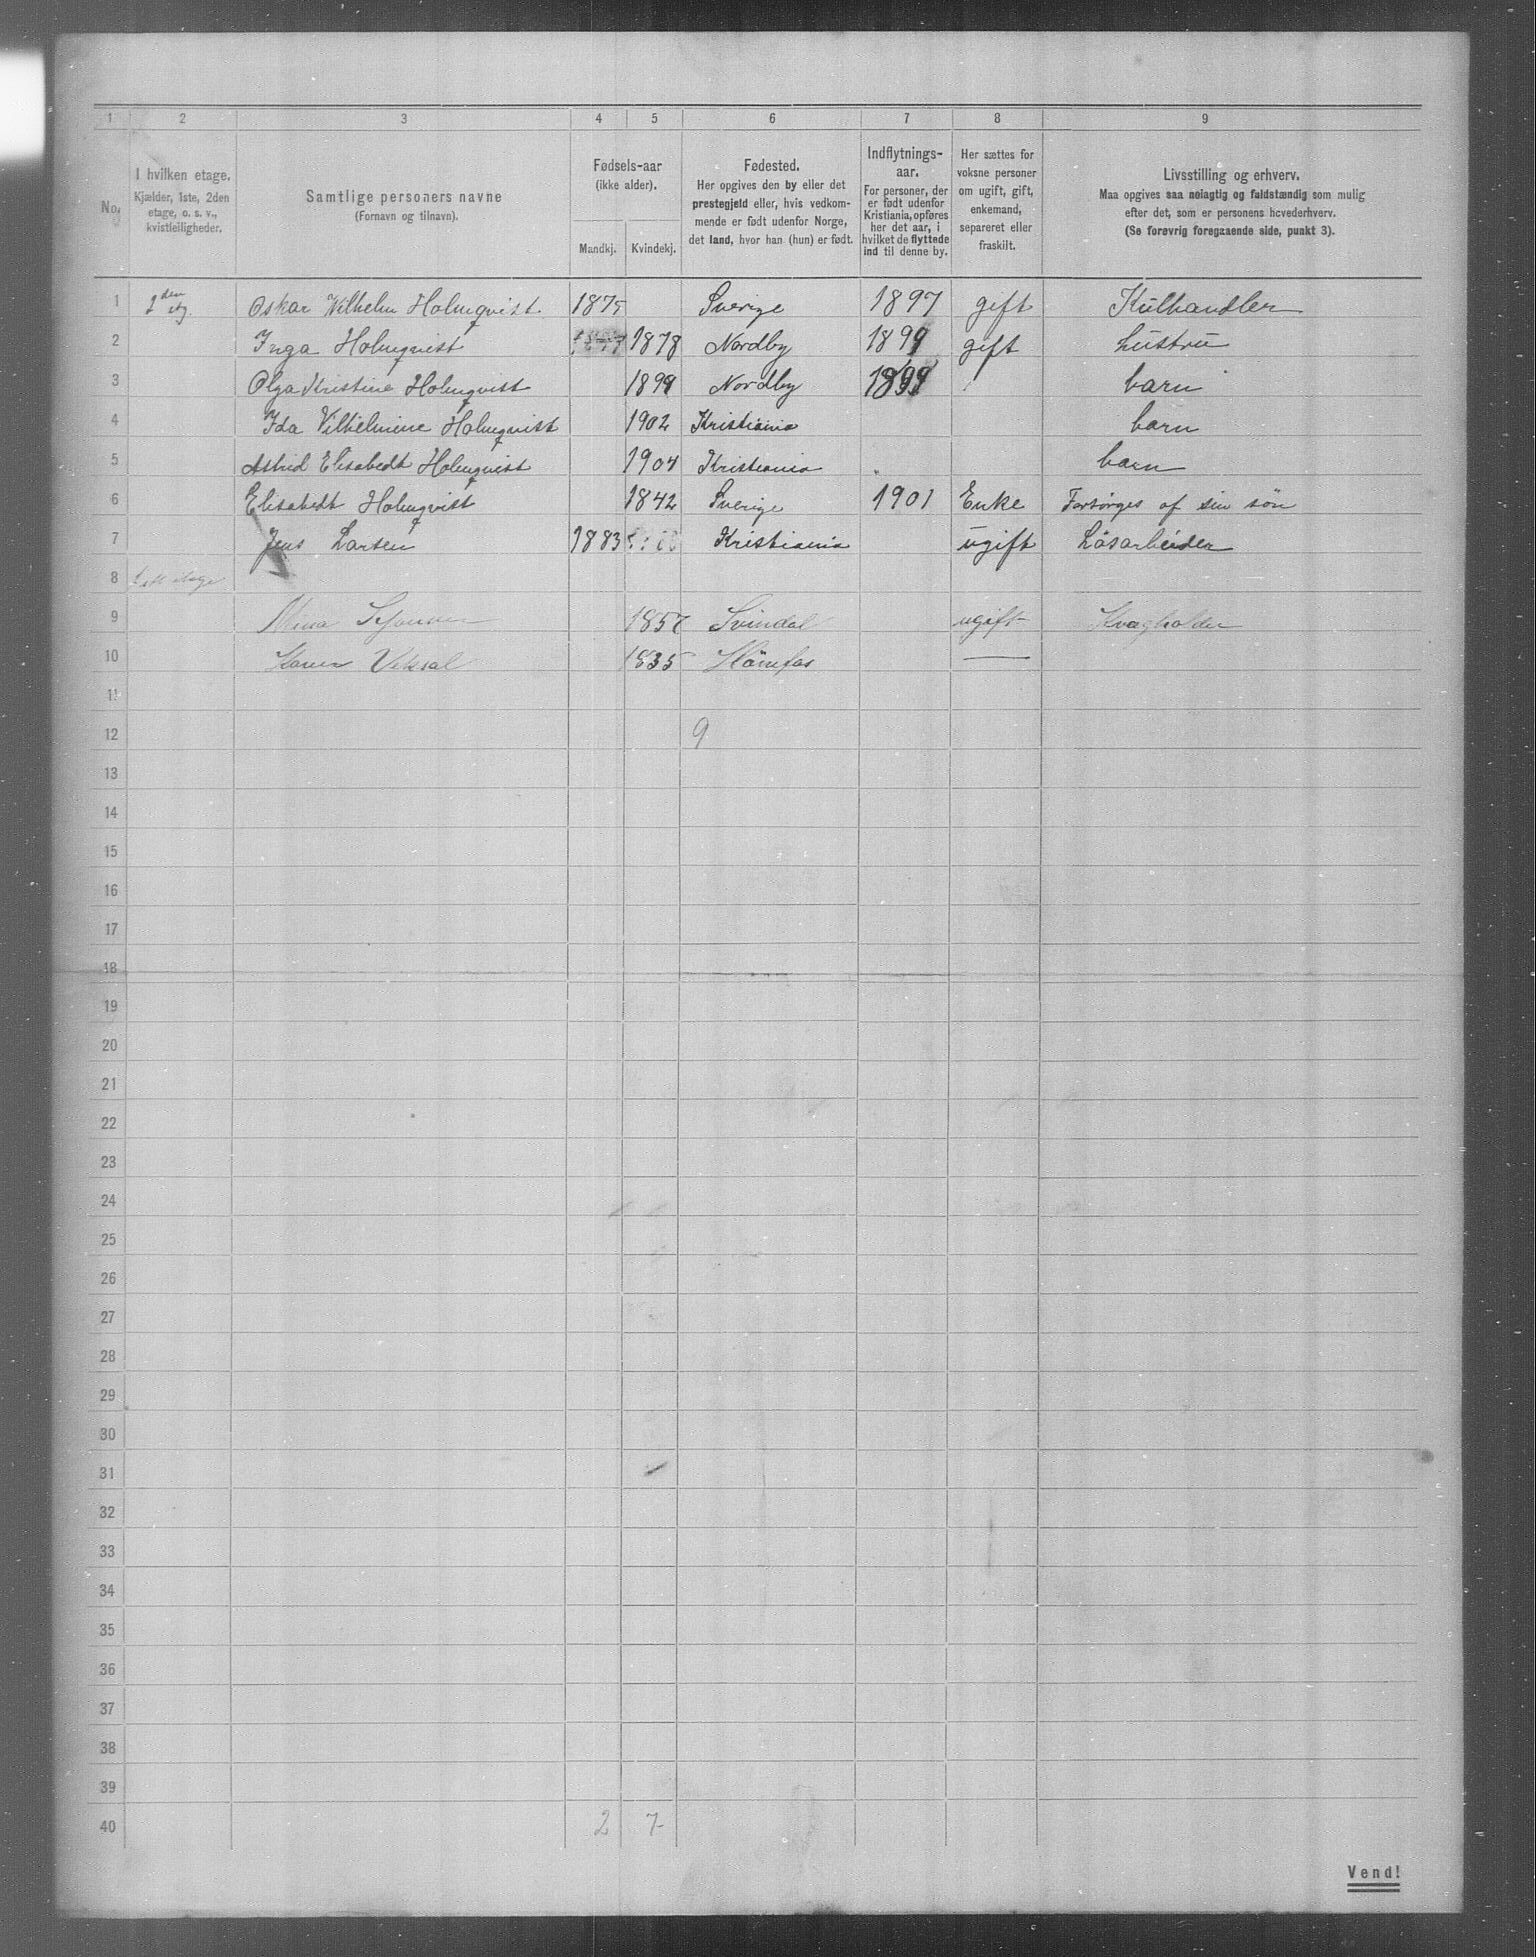 1 2 3 4 5 6 7 8 9
No.
I hvilken etage.
Kjælder, 1ste, 2den
etage, o. s. v.,
kvistleiligheder.
Samtlige personers navne
(Fornavn og tilnavn).
Fødsels-aar
(ikke alder).
Mandkj. Kvindekj.
Fødested.
Her opgives den by eller det
prestegjeld eller, hvis vedkom-
mende er født udenfor Norge,
det land, hvor han (hun) er født.
Indflytnings-
aar.
For personer, der
er født udenfor
Kristiania, opføres
her det aar, i
hvilket de flyttede
ind til denne by.
Her sættes for
voksne personer
om ugift, gift,
enkemand,
separeret eller
fraskilt.
Livsstilling og erhverv.
Maa opgives saa nøiagtig og fuldstændig som mulig
efter det, som er personens hovederhverv.
(Se forøvrig foregaaende side, punkt 3).
1 2den etg. Oskar Vilhelm Holmqvist 1875 Sverige 1897 gift Kulhandler
2 Inga Holmqvist 1878 Nordby 1899 gift hustru
3 Olga Kristine Holmqvist 1899 Nordby 1899 barn
4 Ida Vilhelmine Holmqvist 1902 Kristiania barn
5 Astrid Elisabedt Holmqvist 1904 Kristiania barn
6 Elisabedt Holmqvist 1842 Sverige 1901 Enke Forsörges af sin sön
7 Jens Larsen 1883 Kristiania ugift Lösarbeider
8 etage
9 Mina 1857 Svindal ugift
10 Karen 1835
11
12 9
13
14
15
16
17
18
19
20
21
22
23
24
25
26
27
28
29
30
31
32
33
34
35
36
37
38
39
40 2 7
Vend!